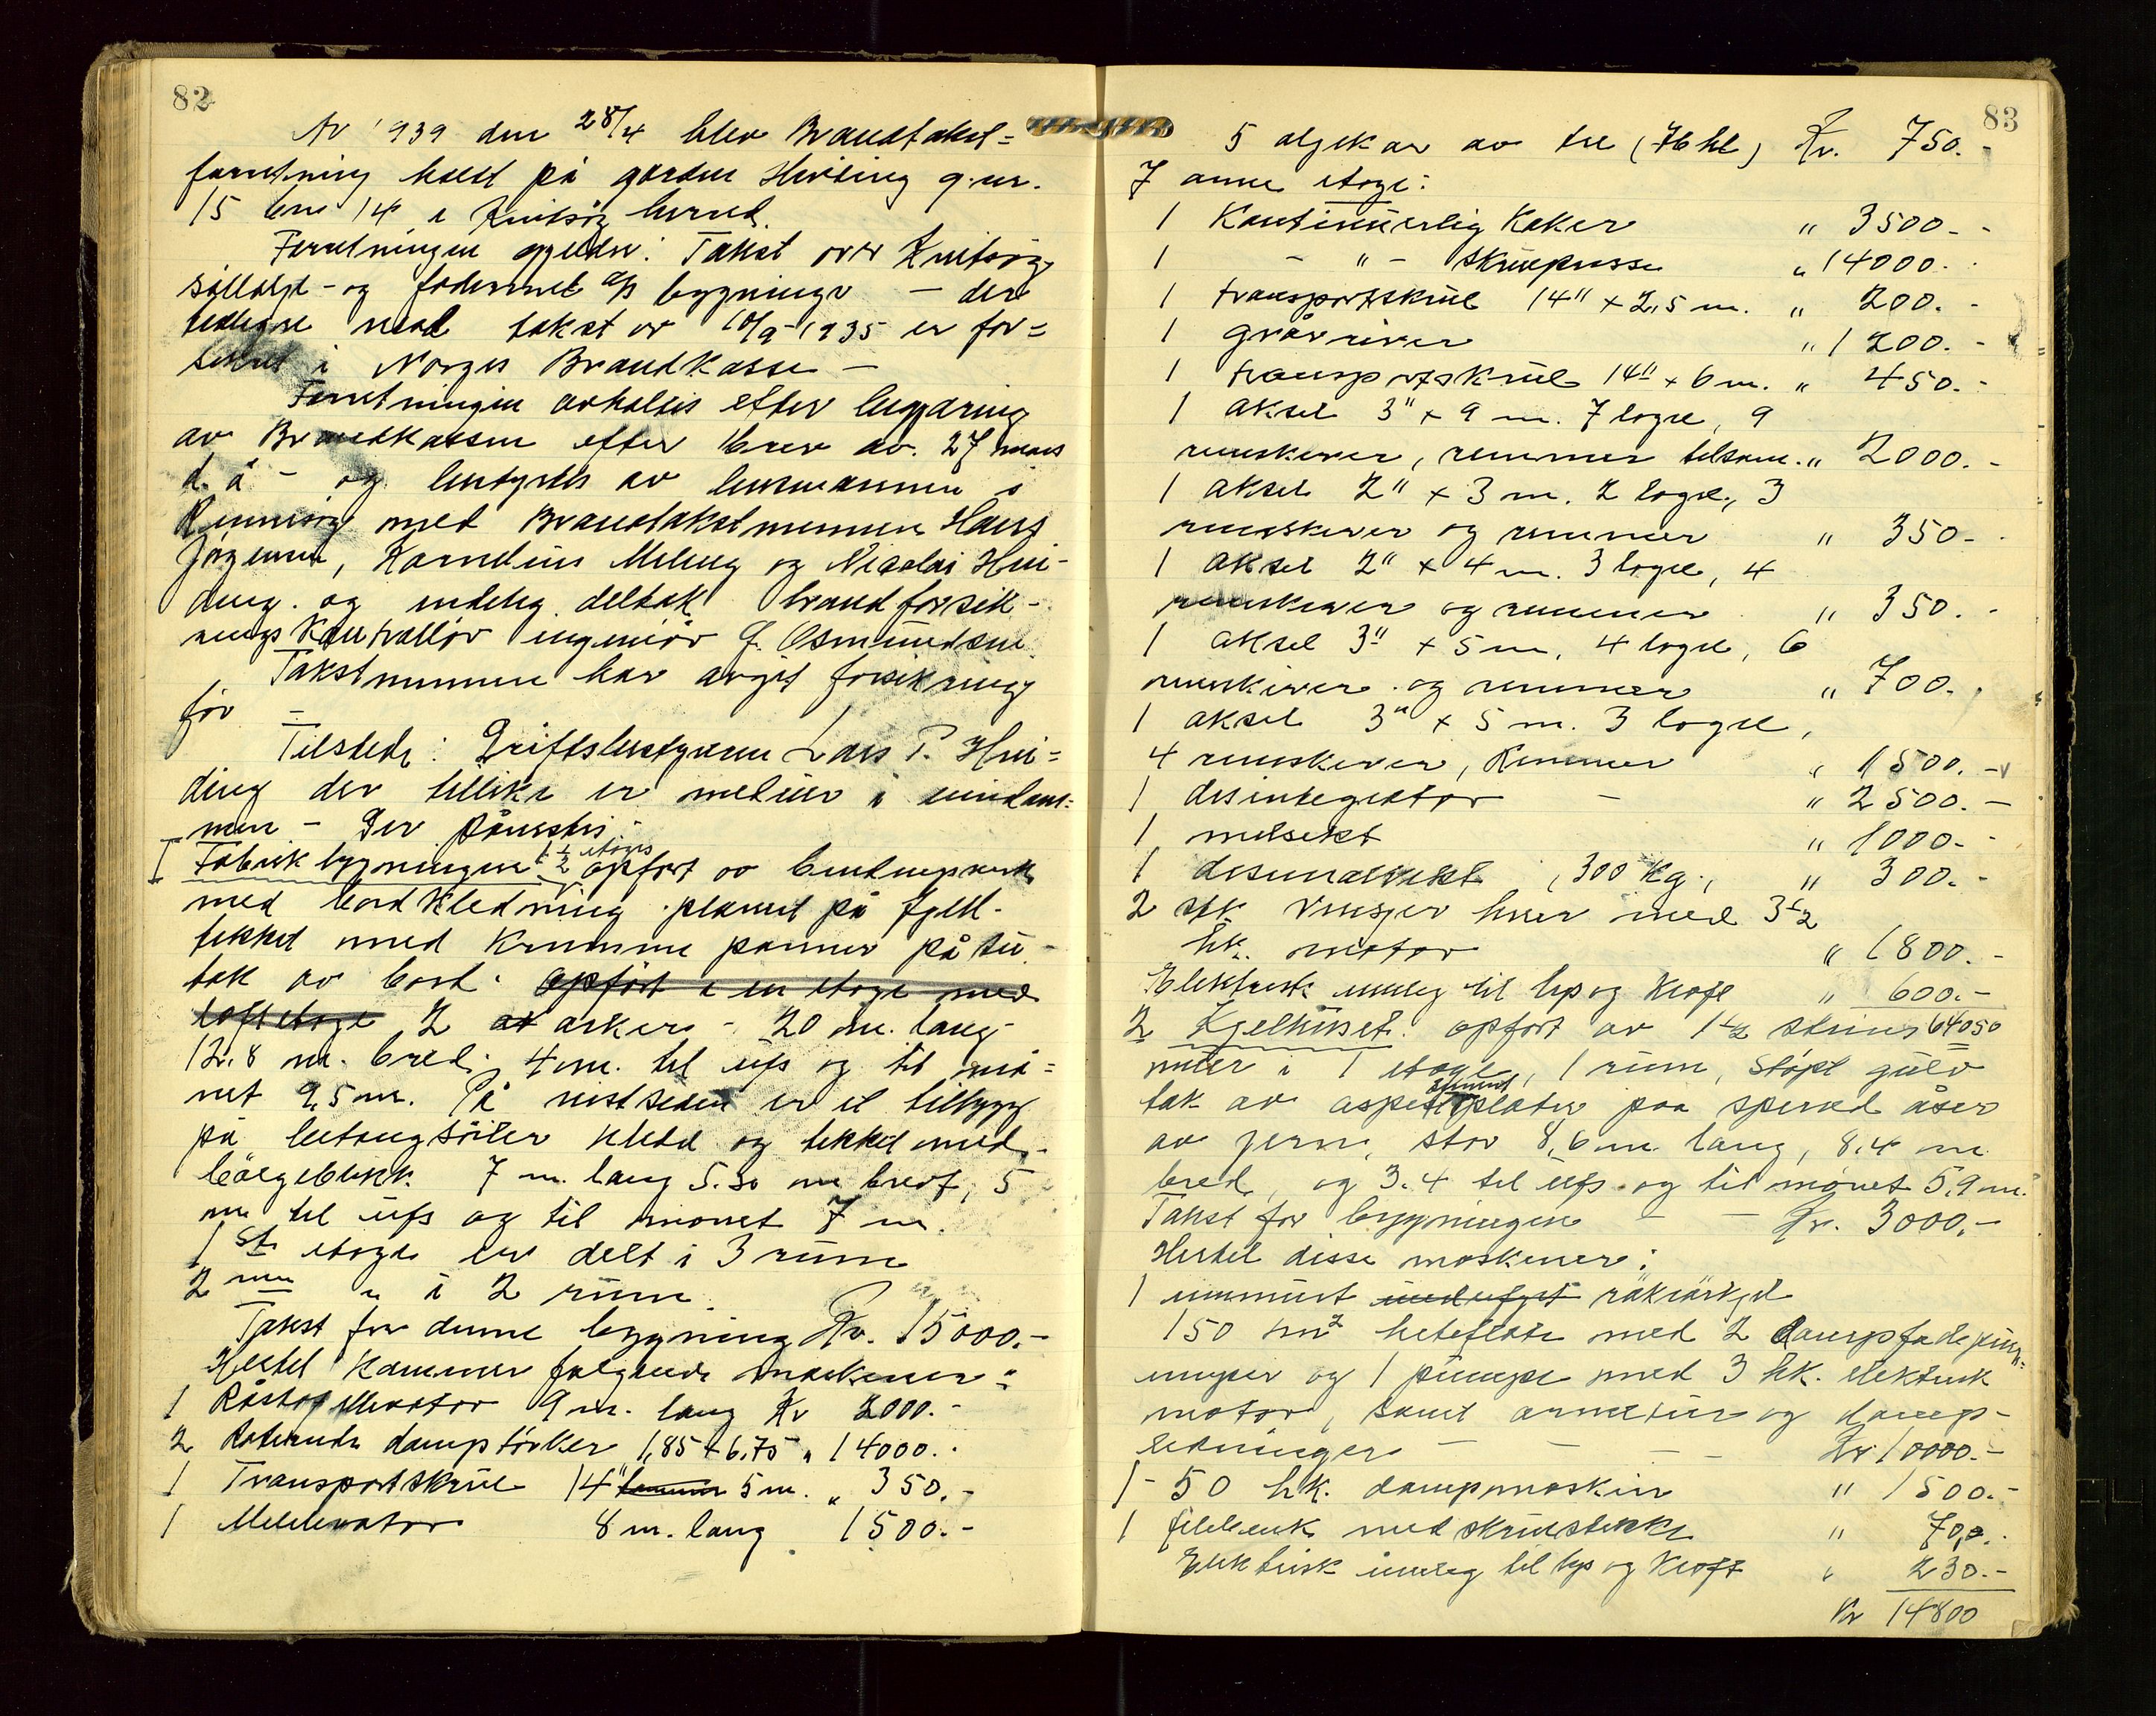 82
År 1939 den 28/4 blev Brandtakst=
forretning holdt på garden Hviding g.nr.
15 bnr 14 i Kvitsøy herred.
Forretningen gjelder: Takst over Kvitsøy
sildolje- og fodermel A/S bygninger - der
tidligere med takst av 10/9-1935 er for=
sikret i Norges Brandkasse -
Forretningen avholdes efter begjæring
av Brandkassen efter brev av 27 mars
d. å - og bestyrtes av lensmannen i
Rennesøy med Brandtakstmennene Hans
Jørgensen, Kornelius Meling og Nicolai Hvi-
ding. og endelig deltok brandforsik-
rings kontrollør ingeniør G. Osmundsen
Takstmennene har avgit forsikring
før -
Tilstede: Driftsbestyreren Lars P. Hvi=
ding der tillike er medeier i eiendom=
men - Der påvistes:
I Fabrikbygningen 1 1/2 etages opført av bindingsverk
med bordkledning. planert på fjell.
tekket med krumme panner på su-
tak av bord. opført i en etage med
loftetage 2 av arker - 20 m. lang-
12.8 m. bred. 4 m. til ufs og til mø=
net 9,5 m. På vestsiden er et tilbygg
på betongsøiler kledd og tekket med
bølgeblikk. 7 m. lang 5.30 m bredt, 5
m til ufs og til mønet 7 m.
1ste etage er delt i 3 rum
2nen " i 2 rum.
Takst for denne bygning Kr. 15000.-
Hertil kommer følgende maskiner:
1 Råstofellevator 9 m. lang Kr 2000.-
2 Roterende damptørker 1,85 + 6,75 " 14000.-
1 Transportskrue 14" 5 m. " 350.-
1 Melelevator 8 m. lang 1500.-
83
5 oljekar av tre (76 hl) Kr. 750.-
I anne etage:
1 Kontinuerlig Koker " 3500.-
1 - " - skruepresse " 14000.-
1 transportskrue 14" + 2,5 m. " 200.-
1 grøvriver " 1200.-
1 transportskrue 14" + 6 m. " 450.-
1 aksel 3" + 9 m. 7 lager, 9
remskiver, remmer tilsam. " 2000.-
1 aksel 2" + 3 m. 2 lager, 3
remskiver og remmer " 350.-
1 aksel 2" + 4 m. 3 lager, 4
remskiver og remmer " 350.-
1 aksel 3" + 5 m, 4 lager, 6
remskiver og remmer " 700.-
1 aksel 3" + 5 m. 3 lager,
4 remskiver, Remmer " 1500.-
1 desintegrator - " 2500.-
1 melsikt " 1000.-
1 desimalvekt (300 kg.) " 300.-
2 stk vinsjer hver med 3 1/2
hk. motor " 1800.-
Elektrisk innleg til lys og kraft " 600.-
2 Kjelhuset. opført av 1 1/2 steins 64050
mur i 1 etage, 1 rum, støpt gulv
tak av aspestsementplater paa sperred åser
av jern, stor 8,6 m. lang, 8.4 m
bred, og 3.4 til ufs og til mønet 5,9 m.
Takst for bygningen - - Kr. 3000.-
Hertil disse maskiner:
1 innmurt røkrørkjel
150 m2 heteflate med 2 dampfødepum=
umper og 1 pumpe med 3 hk. elektrisk
motor, samt armatur og damp-
ledninger - - - Kr 10000.-
1 - 50 hk. dampmaskin " 1500.-
1 filebenk med skruestikke " 70,0.-
Elektrisk innleg til lys og kraft " 230.-
Kr 14800